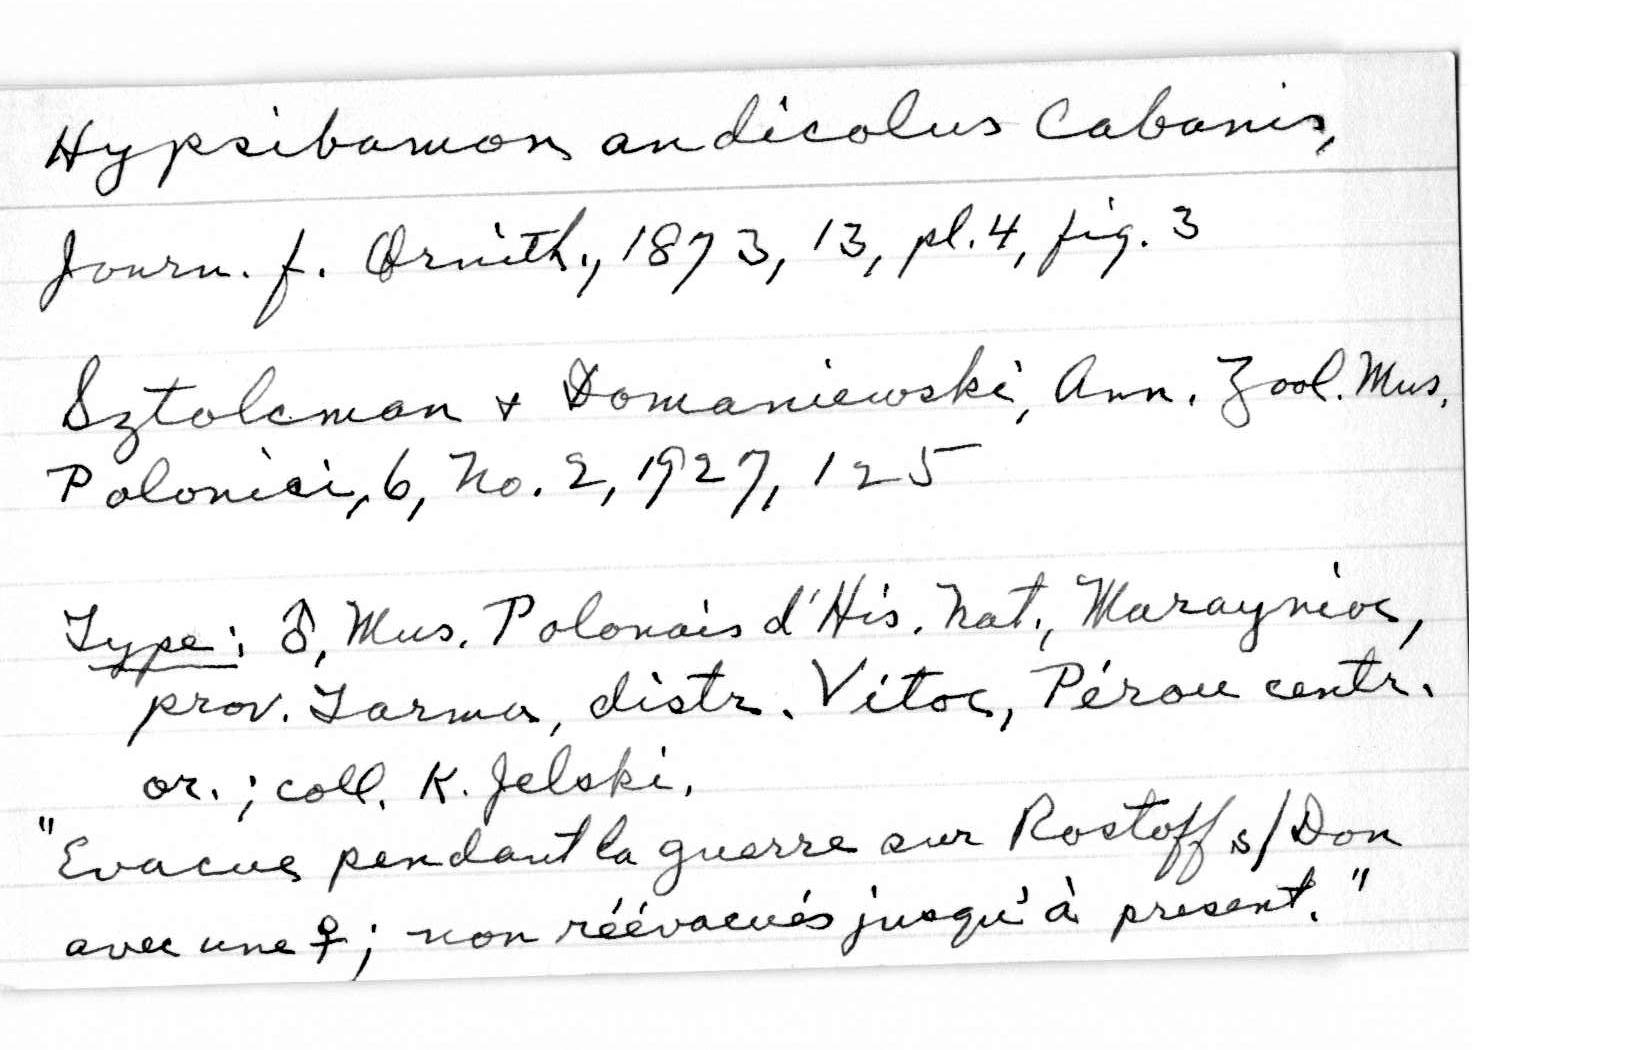 Hypsibamon andicolus Cabanis,
Journ. f. Ornith., 1873, 13, pl. 4, fig. 3
Sztolcman + Domaniewski, Ann. Zool. Mus.
Polonici, 6, No. 2, 1927, 125
Type: ♂, Mus. Polonais d'His. Nat., Maraynioc,
prov. Tarma, distr. Vitoc, Pérou centr.
or.; coll. K. Jelski.
"Evacue pendant la guerre sur Rostoff s/Don
avec une ♀; non réévacués jusqu'à present."